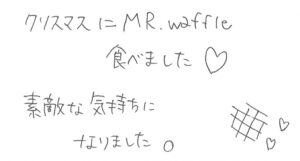 クリスマスにMR.waffle
食べました♡
素敵な気持ちに
なりました。